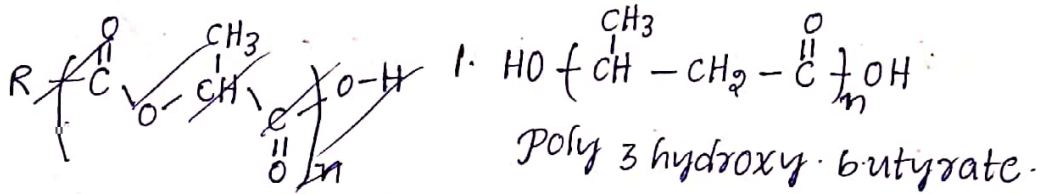 R ( C O O - CH CH3 C O O-H )n
1. HO ( CH CH3 - CH2 - C O )n OH
Poly 3 hydroxy. butyrate.